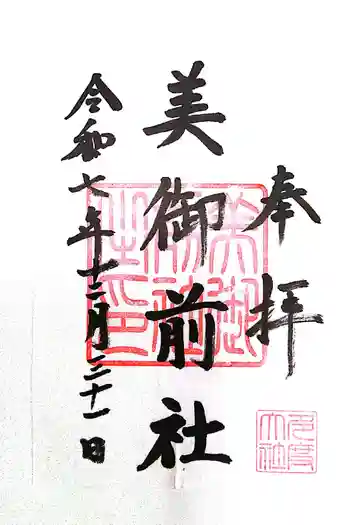 奉拝
美御前社
令和七年十二月三十一日